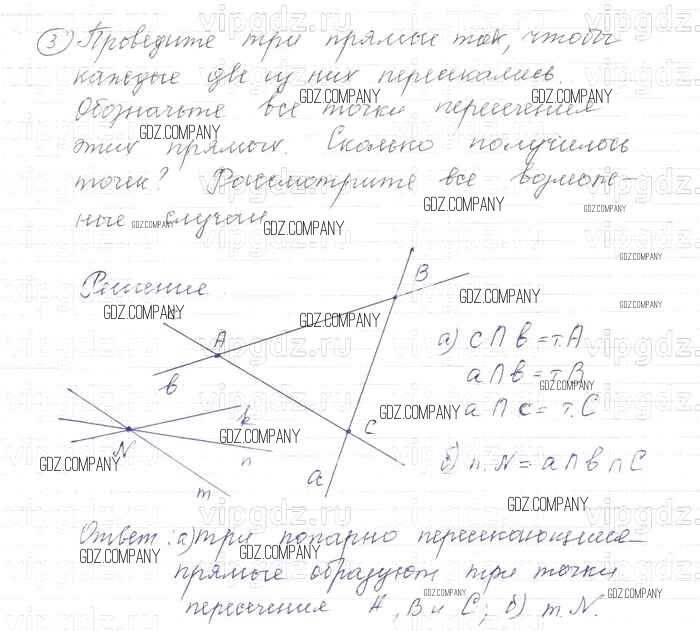 3 Проведите три прямые так, чтобы
каждые две из них пересекались.
Обозначьте все точки пересечения
этих прямых. Сколько получилось
точек? Рассмотрите все возмож-
ные случаи
Решение
B
A
а) c ∩ в = т.А
в
a ∩ в = т.В
a ∩ c = т.С
k
C
N
n
б) т. N = a ∩ в ∩ C
a
m
Ответ: а) три попарно пересекающиеся
прямые образуют три точки
пересечения А, В и С; б) т. N.
GDZ.COMPANY
vipgdz.ru